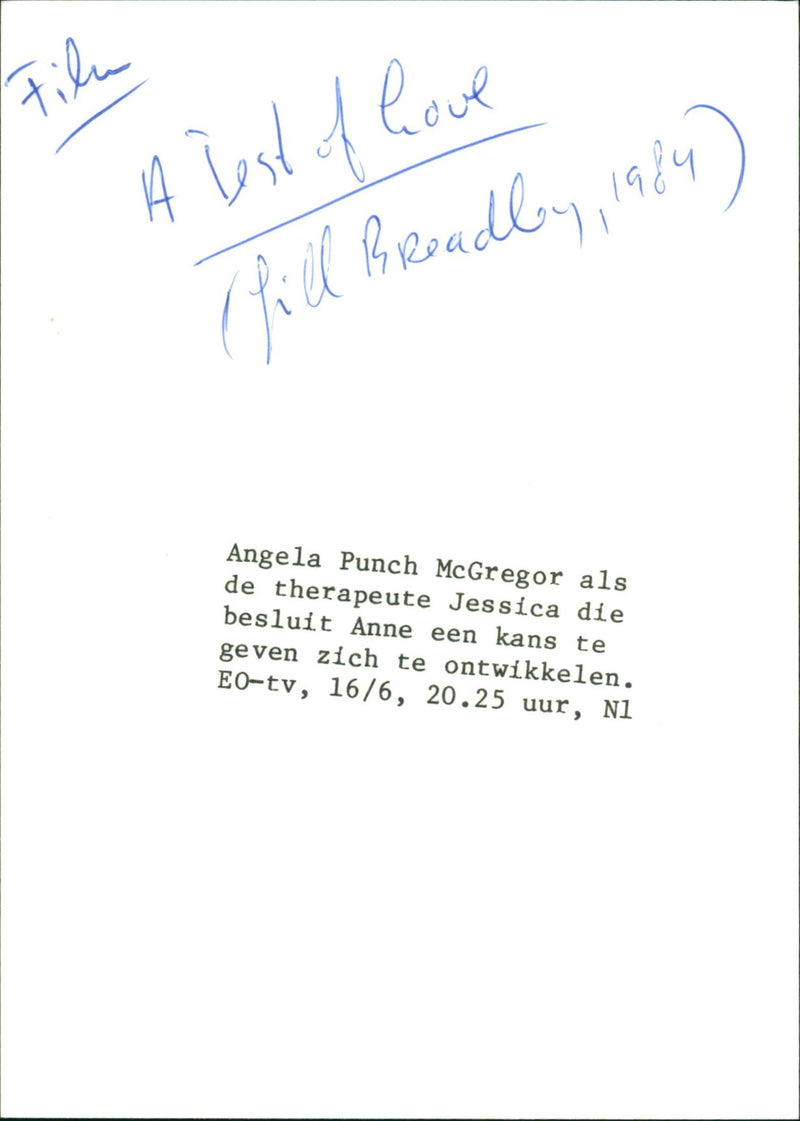 Film
A Test of Love
(Gill Breadley, 1984)
Angela Punch McGregor als
de therapeute Jessica die
besluit Anne een kans te
geven zich te ontwikkelen.
EO-tv, 16/6, 20.25 uur, Nl